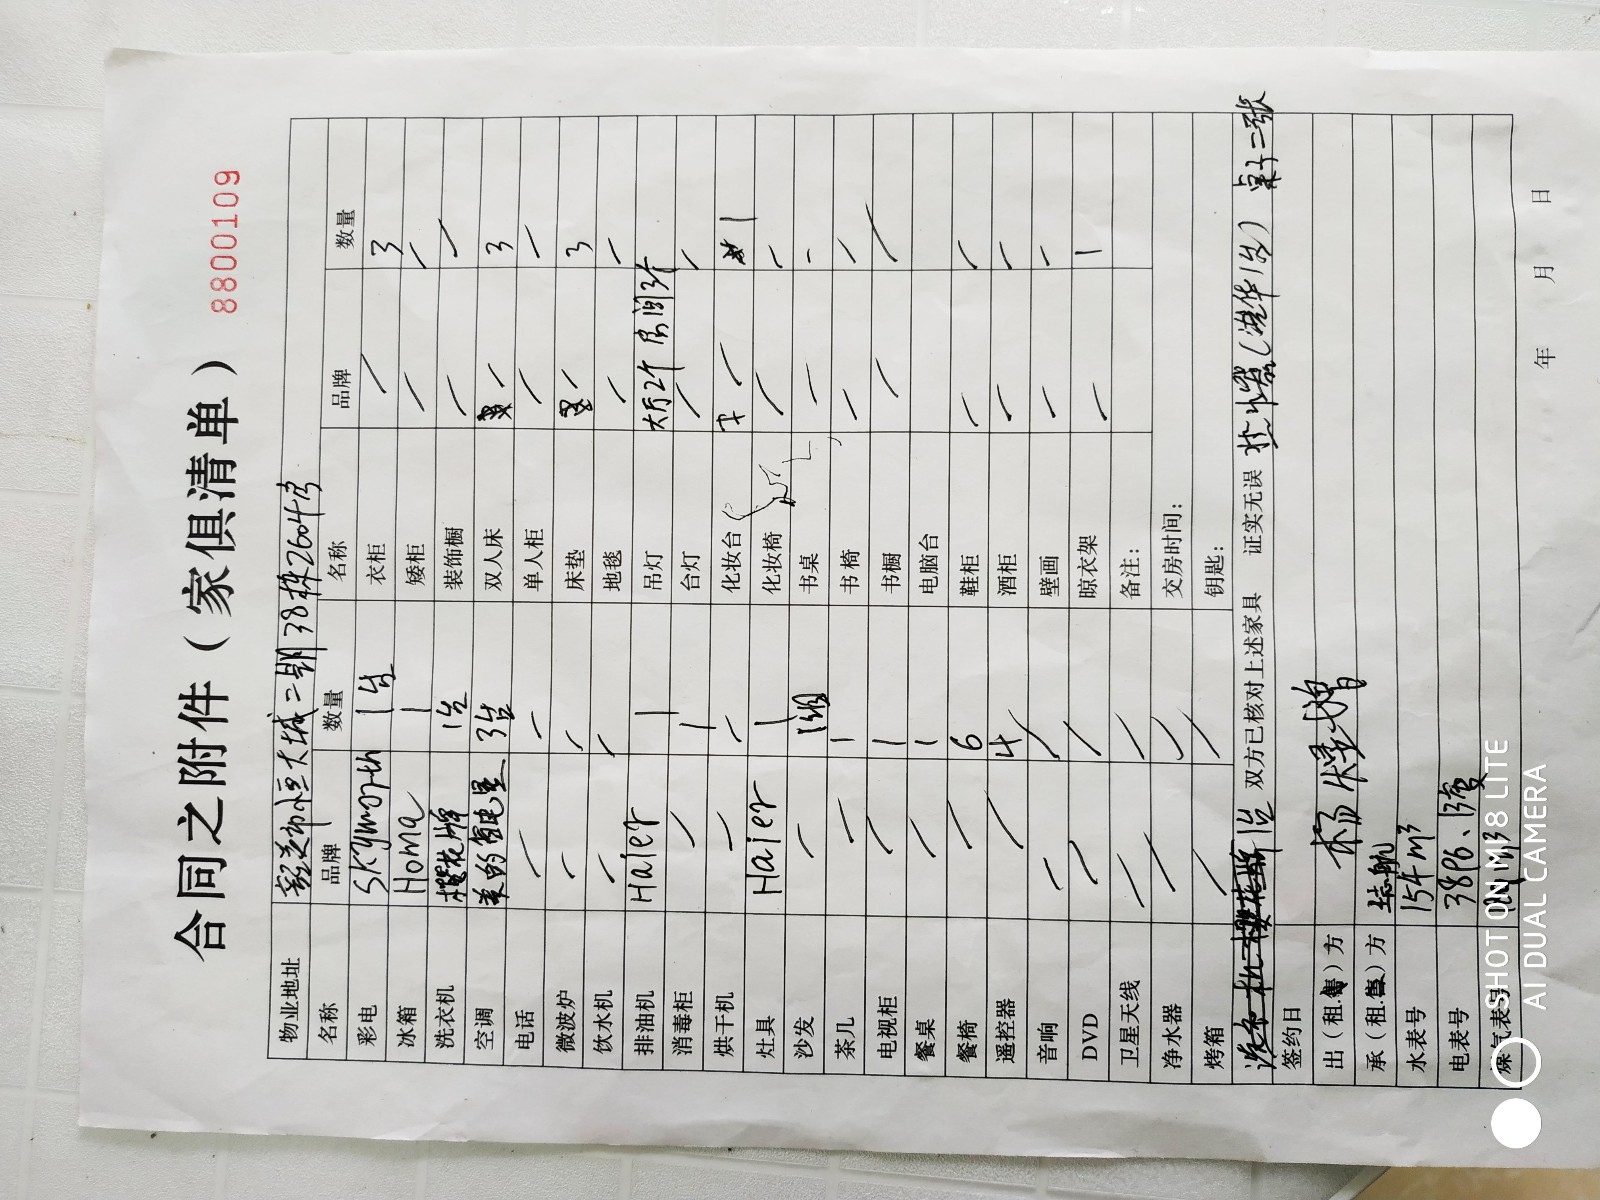 合同之附件（家俱清单）
8800109
物业地址 恒大城二期38栋2604房
名称 品牌 数量 名称 品牌 数量
彩电 Skyworth 1台 衣柜 / 3
冰箱 Homa 1 矮柜 / /
洗衣机 樱花牌 1台 装饰橱 / /
空调 美的 3台 双人床 / 3
电话 / / 单人柜 / /
微波炉 / / 床垫 / 3
饮水机 / / 地毯 / /
排油机 Haier 1 吊灯 大厅2个 房间3个
消毒柜 / 1 台灯 / /
烘干机 / / 化妆台 / 1
灶具 Haier 1 化妆椅 / /
沙发 / 1组 书桌 / /
茶几 / 1 书椅 / /
电视柜 / 1 书橱 / /
餐桌 / 1 电脑台
餐椅 / 6 鞋柜 / /
遥控器 / 4 酒柜 / /
音响 / / 壁画 / /
DVD / / 晾衣架 / 1
卫星天线 / / 备注：
净水器 / / 交房时间：
烤箱 / / 钥匙：
1台 双方已核对上述家具 证实无误 桌子二张
签约日
出（租.售）方 杨
承（租.售）方
水表号 154m³
电表号 3896.1度
煤气表号
年 月 日
SHOT ON MI 8 LITE
AI DUAL CAMERA